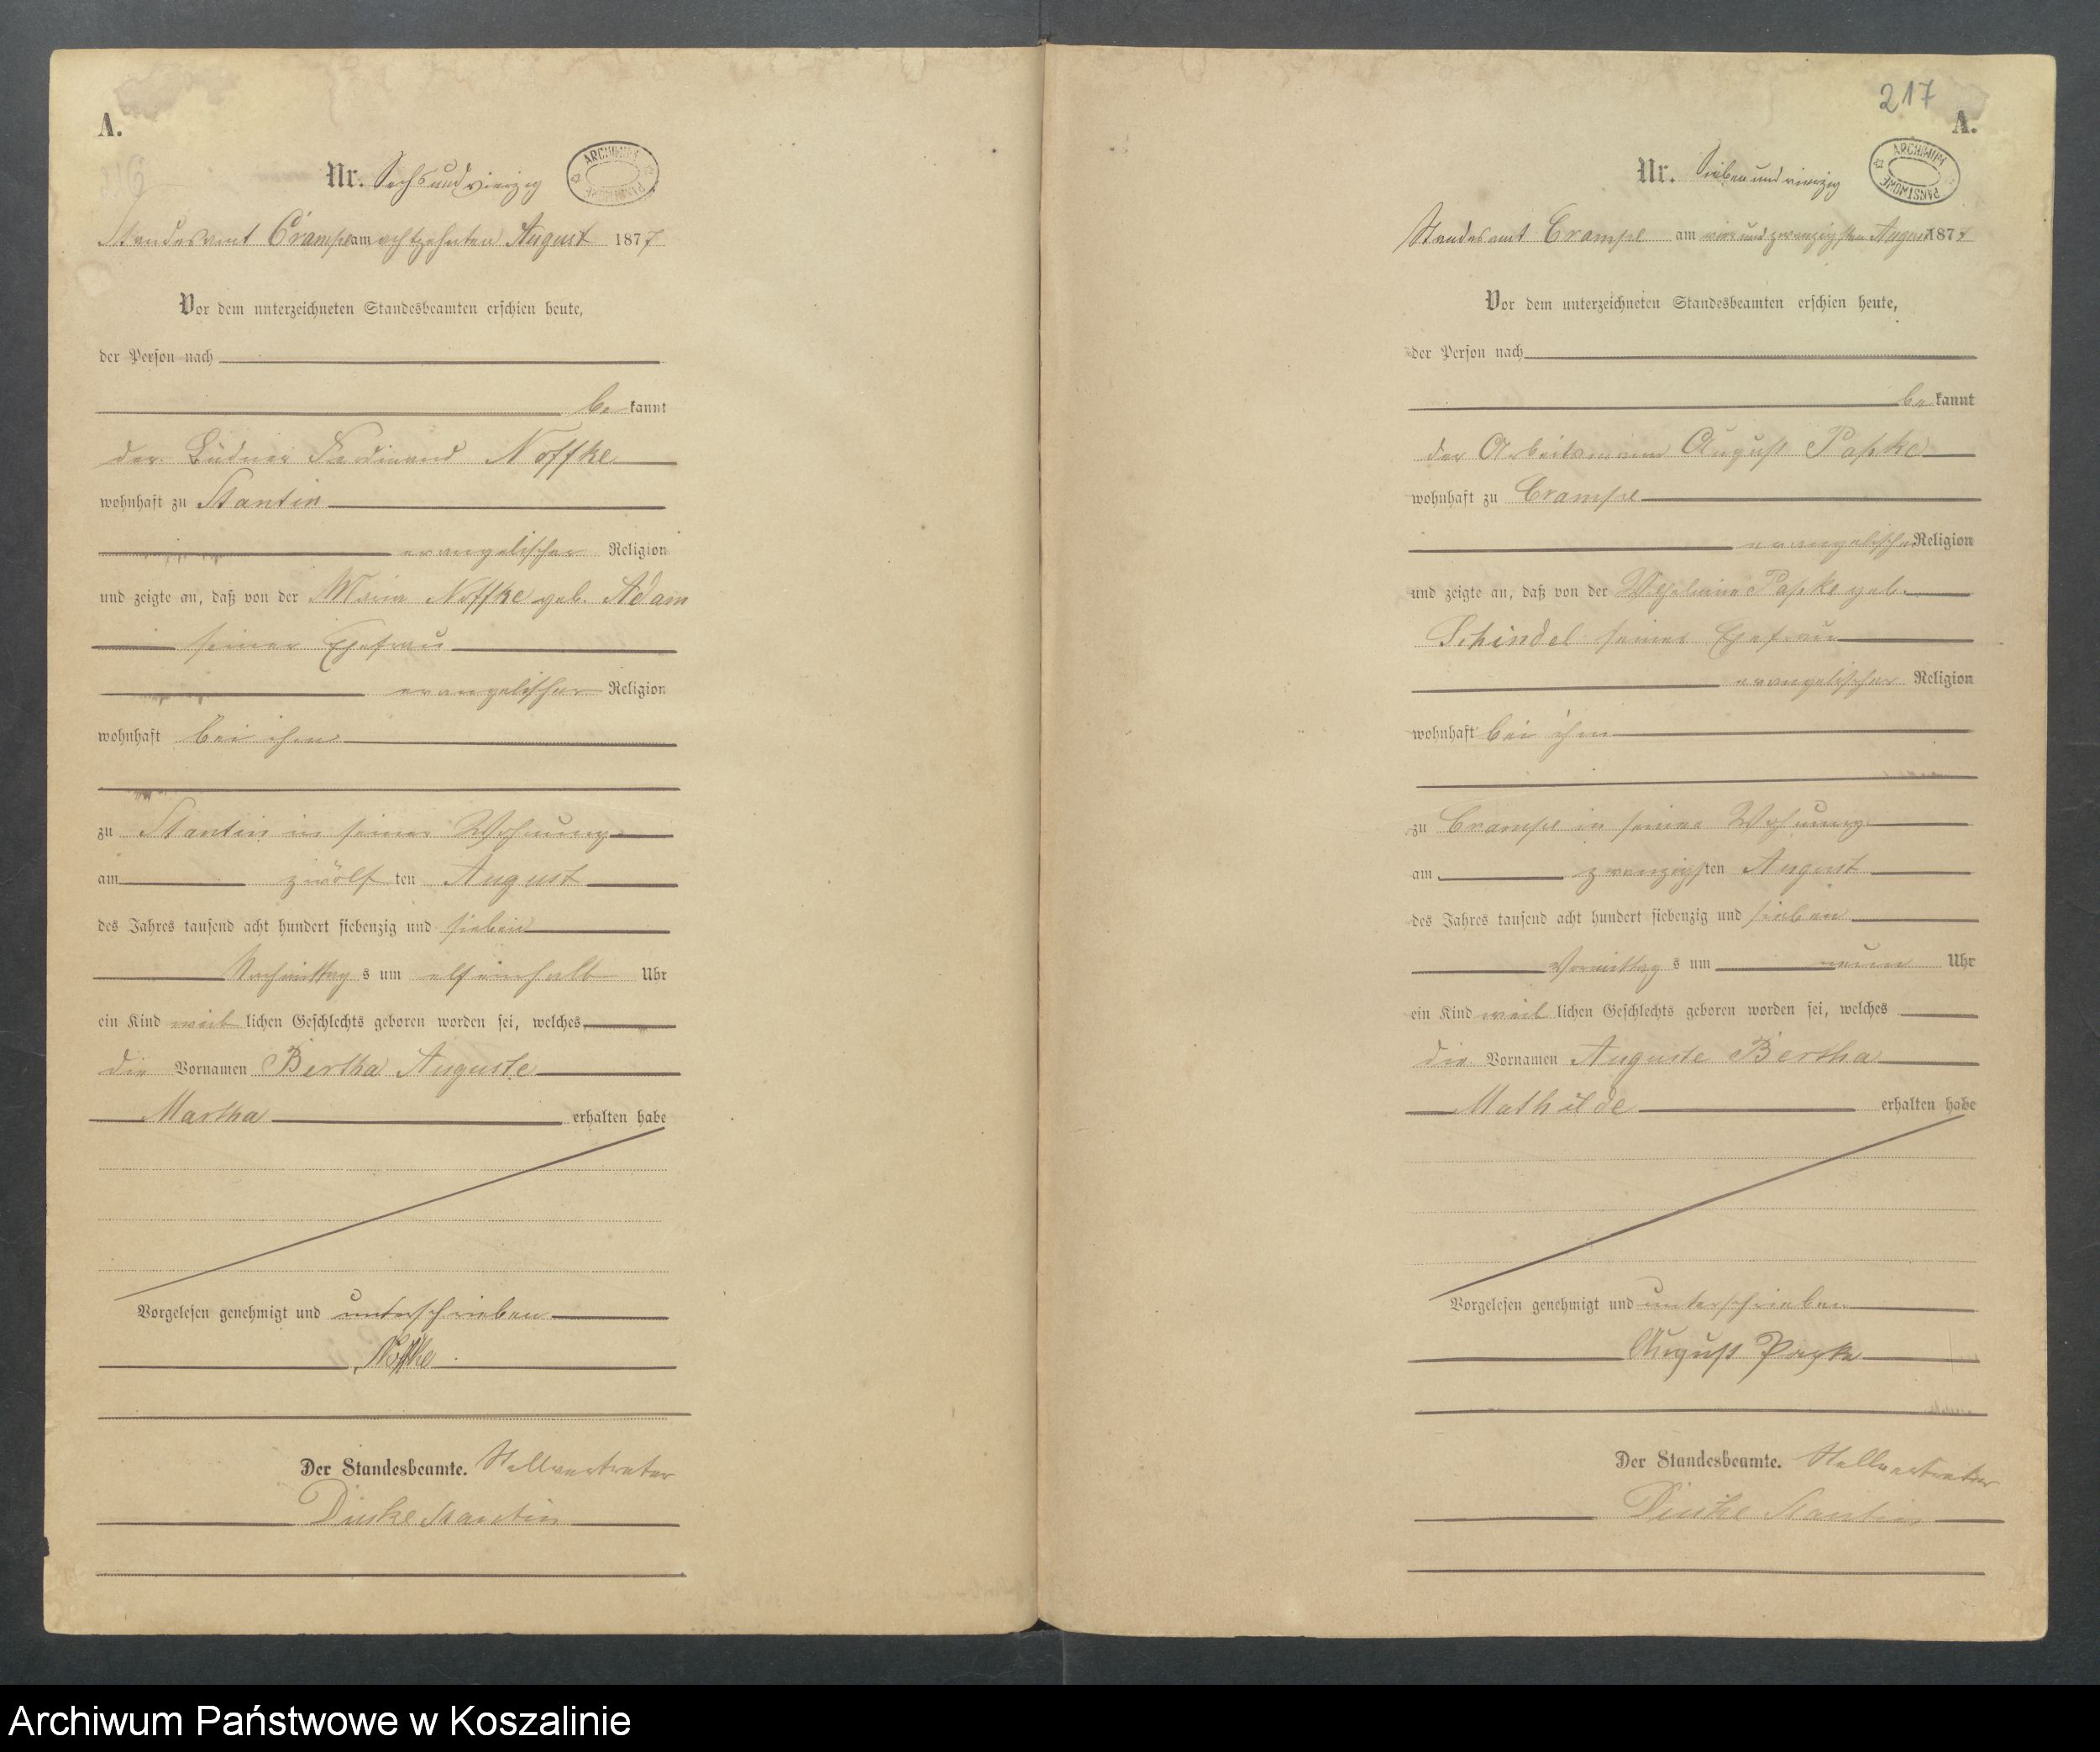 A.
Nr. Sechsundvierzig
ARCHIWUM PAŃSTWOWE
Standesamt Crampe am achtzehnten August 1877
Vor dem unterzeichneten Standesbeamten erschien heute,
der Person nach
be kannt
der Büdner Ferdinand Noffke
wohnhaft zu Stantin
evangelischer Religion
und zeigte an, daß von der Noffke geb. Adam
seiner Ehefrau
evangelischer Religion
wohnhaft bei ihm
zu Stantin in seiner Wohnung
am zwölf ten August
des Jahres tausend acht hundert siebenzig und sieben
Nachmittag s um elfeinhalb Uhr
ein Kind weib lichen Geschlechts geboren worden sei, welches
die Vornamen Bertha Auguste
Martha erhalten habe
Vorgelesen genehmigt und unterschrieben
Noffke
Der Standesbeamte. Stellvertreter
Stantin
217
A.
Nr. Siebenundvierzig
ARCHIWUM PAŃSTWOWE
Standesamt Crampe am vierundzwanzigsten August 1877
Vor dem unterzeichneten Standesbeamten erschien heute,
der Person nach
be kannt
der Arbeitsmann August Papke
wohnhaft zu Crampe
evangelischer Religion
und zeigte an, daß von der Wilhelmine Papke geb.
Schindel seiner Ehefrau
evangelischer Religion
wohnhaft bei ihm
zu Crampe in seiner Wohnung
am zwanzigs ten August
des Jahres tausend acht hundert siebenzig und sieben
Vormittag s um neun Uhr
ein Kind weib lichen Geschlechts geboren worden sei, welches
die Vornamen Auguste Bertha
Mathilde erhalten habe
Vorgelesen genehmigt und unterschrieben
August Papke
Der Standesbeamte. Stellvertreter
Stantin
Archiwum Państwowe w Koszalinie